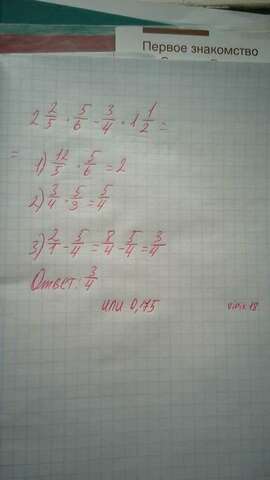 Первое знакомство
2 2/5 · 5/6 - 3/4 · 1 1/2 =
=
1) 12/5 · 5/6 = 2
2) 3/4 · 5/3 = 5/4
3) 2/1 - 5/4 = 8/4 - 5/4 = 3/4
Ответ: 3/4
или 0,175